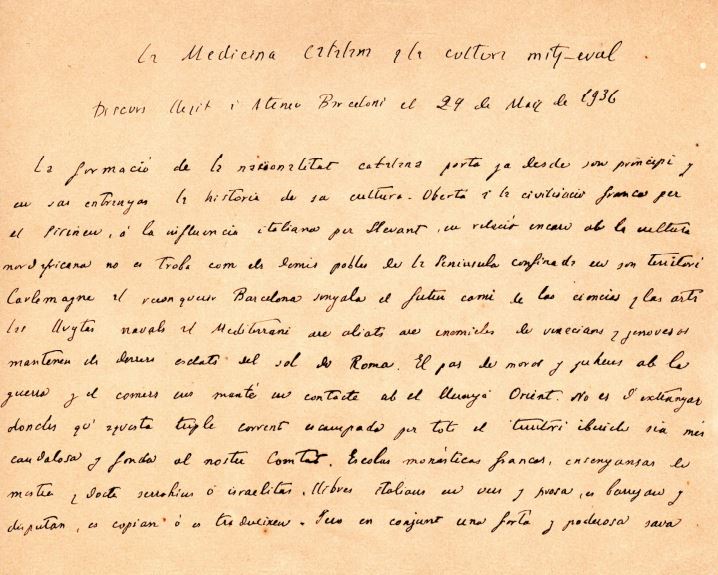 La Medicina Catalana y la cultura mitj-eval
Discurs llegit a Ateneu Barceloni el 29 de Maig de 1936
La formació de la nacionalitat catalana porta ja desde son principi y
en sas entranyas la historia de sa cultura. Oberta a la civilisació franca per
el Pirineu, á la influencia italiana per Llevant, en relació encare ab la cultura
nord africana no es troba com els demés pobles de la Peninsula confinada en son territori
Carlemagne al reconquerir Barcelona senyala el futur camí de las ciencias y las arts
las lluytas navals al Mediterrani are aliats are enemichs de venecians y genovesos
mantenen els darrers esclats del sol de Roma. El pas de moros y juheus ab la
guerra y el comers ens manté en contacte ab el llunyá Orient. No es d'extranyar
donchs qu'aquesta triple corrent escampada per tot el territori iberich sia més
caudalosa y fonda al nostre Comtat. Escolas monásticas francas, ensenyansas de
mestre y docte serrahins ó israelitas, llibres italians en vers y prosa, es barrejan y
disputan, es copian ó es tradueixen. Pero en conjunt una forta y poderosa sava